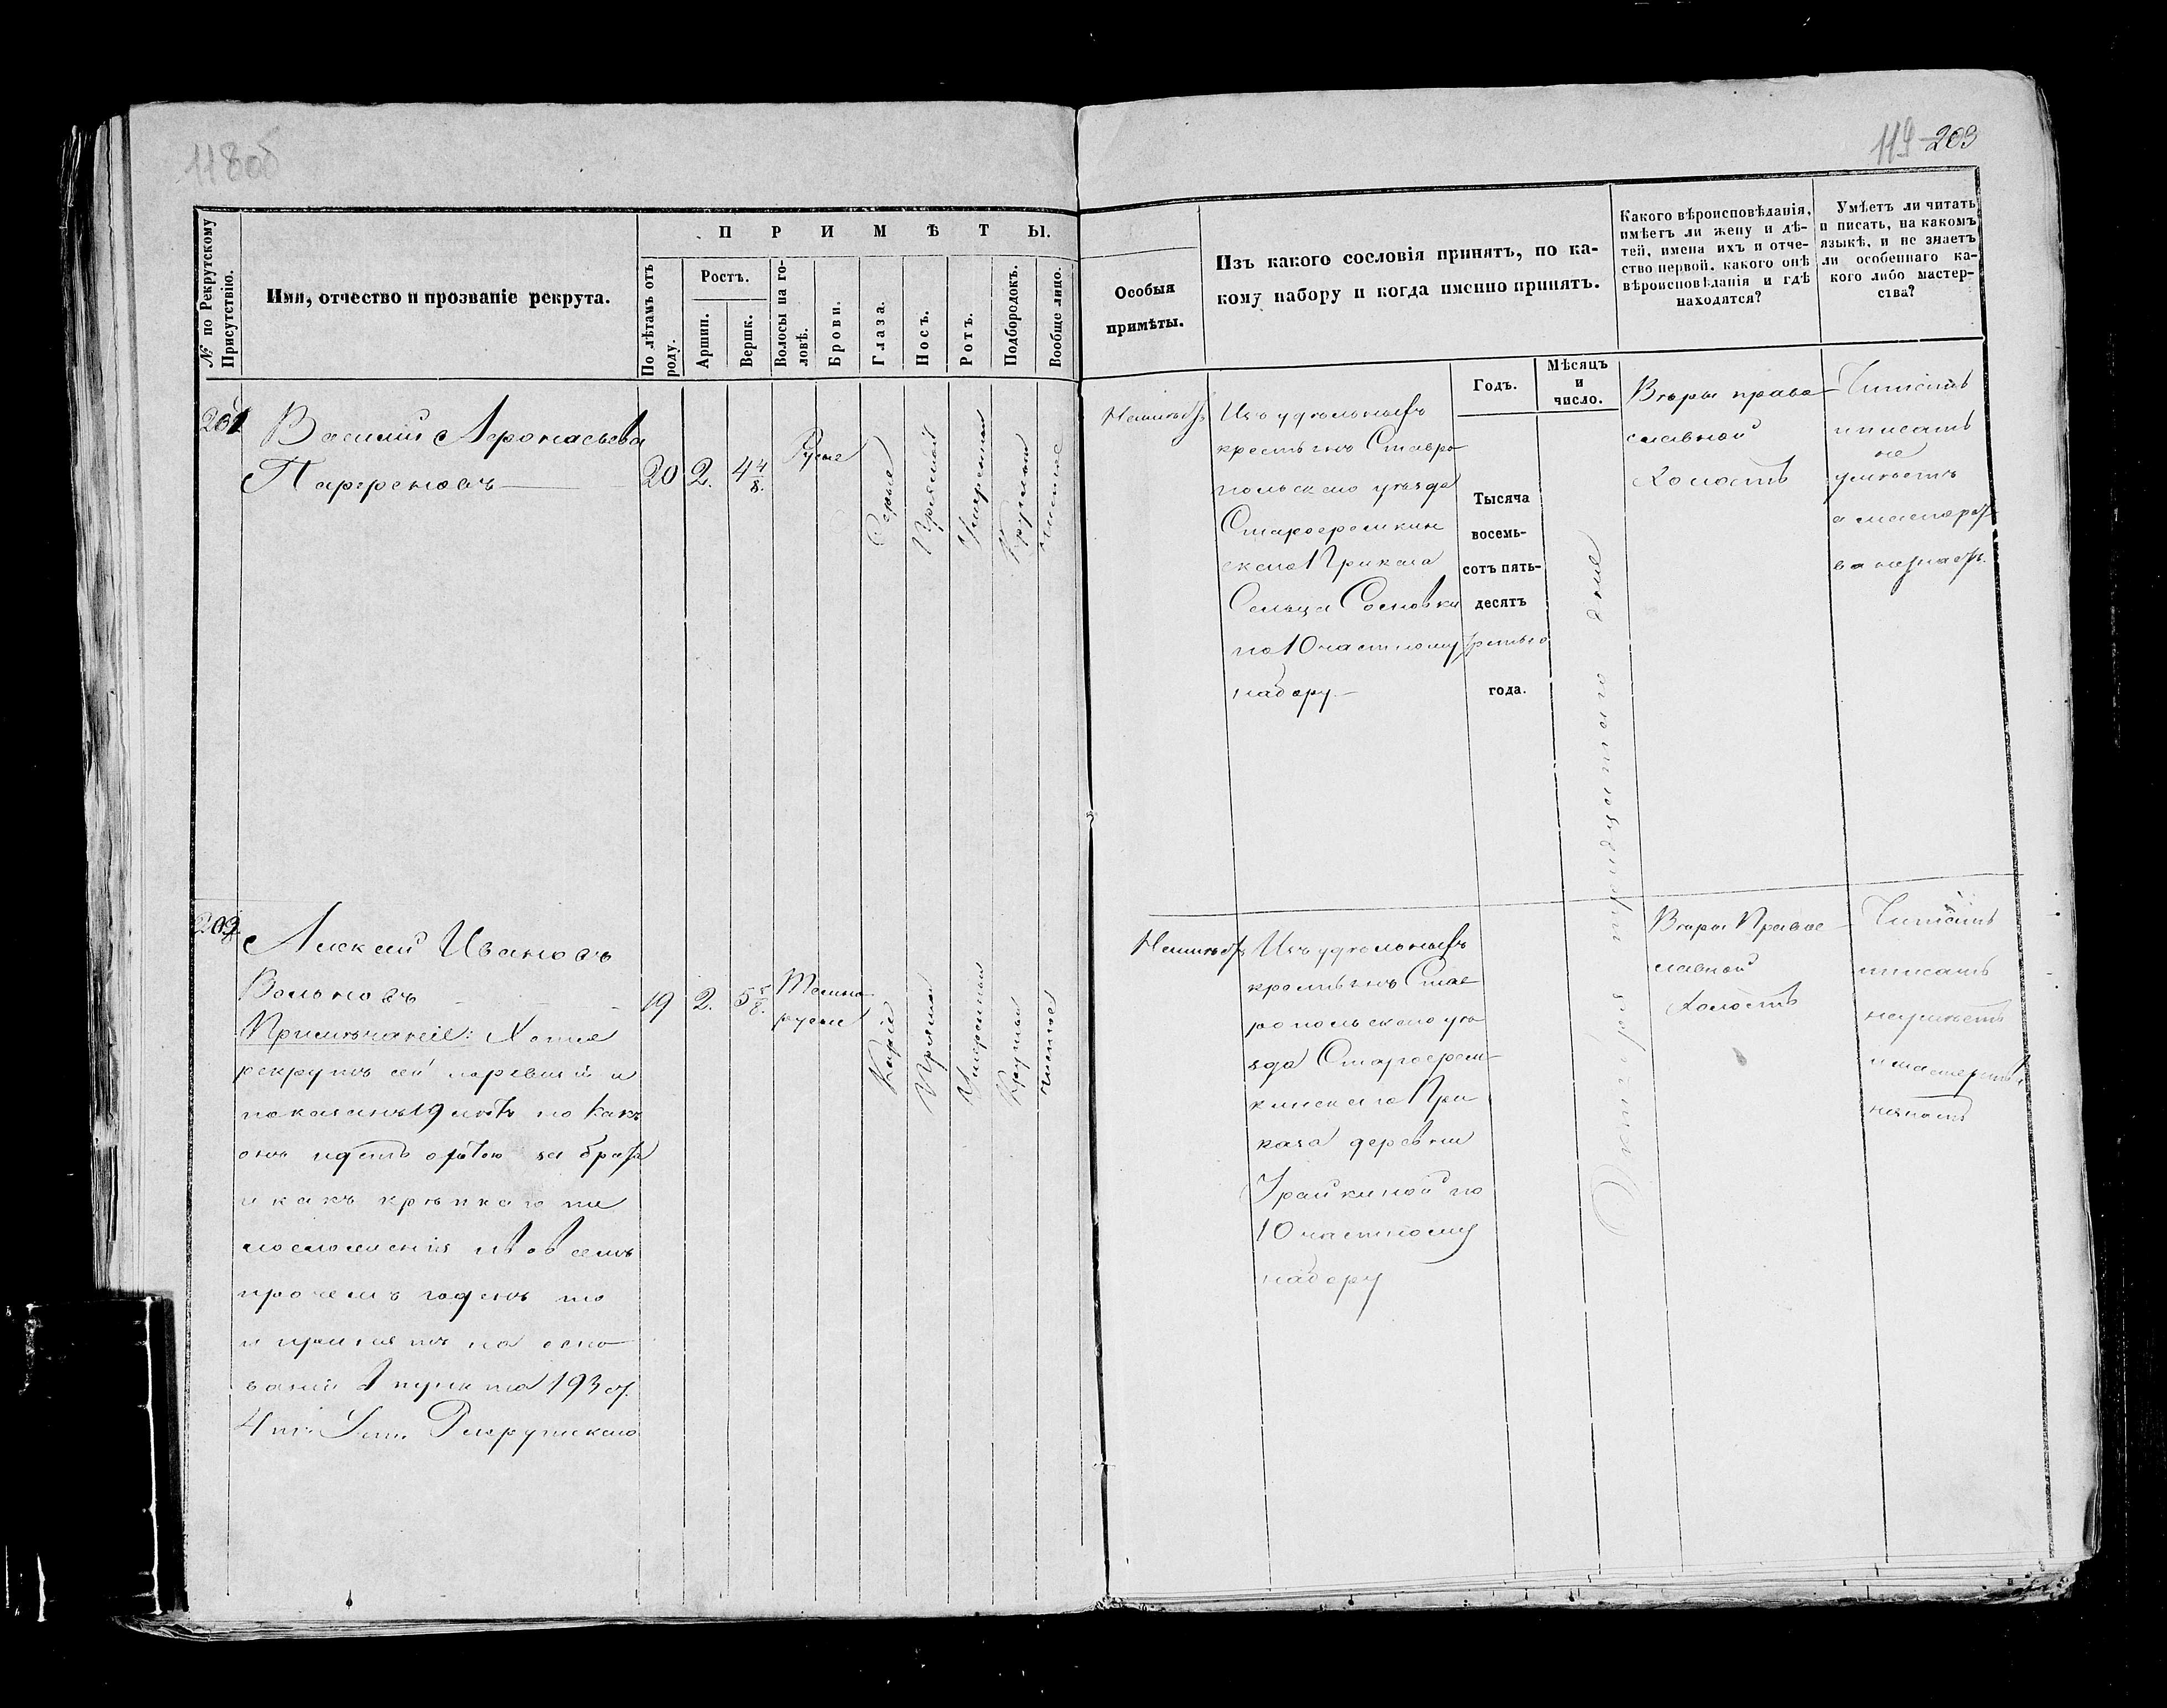 118об
119 203
№ по Рекрутскому Присутствію.
Имя, отчество и прозваніе рекрута.
П Р И М Ѣ Т Ы.
По лѣтамъ отъ роду.
Ростъ.
Аршин.
Вершк.
Волосы на головѣ.
Брови.
Глаза.
Носъ.
Ротъ.
Подбородокъ.
Вообще лицо.
Особыя
примѣты.
Изъ какого сословія принятъ, по ка-
кому набору и когда именно принятъ.
Годъ.
Мѣсяцъ
и
число.
Какого вѣроисповѣданія,
имѣетъ ли жену и дѣ-
тей, имена ихъ и отче-
ство первой, какого онѣ
вѣроисповѣданія и гдѣ
находятся?
Умѣетъ ли читать
и писать, на какомъ
языкѣ, и не знаетъ
ли особеннаго ка-
кого либо мастер-
ства?
201
Василий Афонасьевъ
Парфеновъ
20
2.
4 4/8.
Русые
Серые
Прямой
Умеренной
Круглой
Чистое
Неимѣетъ
Изъ удѣльныхъ
крестьянъ Ставро
польскаго уѣзда
Староеремкин
скаго Приказа
Сельца Сосновки
по 10 частному
набору
Тысяча
восемь-
сотъ пять-
десятъ
третьяго
года.
Октября тридцатаго дня
Вѣры право
славной
Холостъ
Читать
и писать
не
умѣетъ
а мастерст
ва незнаетъ.
202
Алексей Ивановъ
Вольновъ
Примѣчаніе: Хотя
рекрутъ сей
показанъ 19 лѣтъ но какъ
онъ идетъ охотою за брата
и какъ крѣпкаго тѣ
лосложенія и во всемъ
прочемъ годенъ то
и принятъ на осно
ваніи 1 пункта 193 ст.
4 т. Уст. Рекрутскаго
19
2.
5 5/8.
Темно
русые
Каріе
Прямой
Умеренный
Круглый
Чистое
Неимѣетъ
Изъ удѣльныхъ
крестьянъ Став
ропольскаго уѣ
зда Староерем
кинскаго При
каза деревни
Урайкиной по
10 частному
набору
Вѣры Правос
лавной
Холостъ
Читать
писать
неумѣетъ
и мастерства
незнаетъ